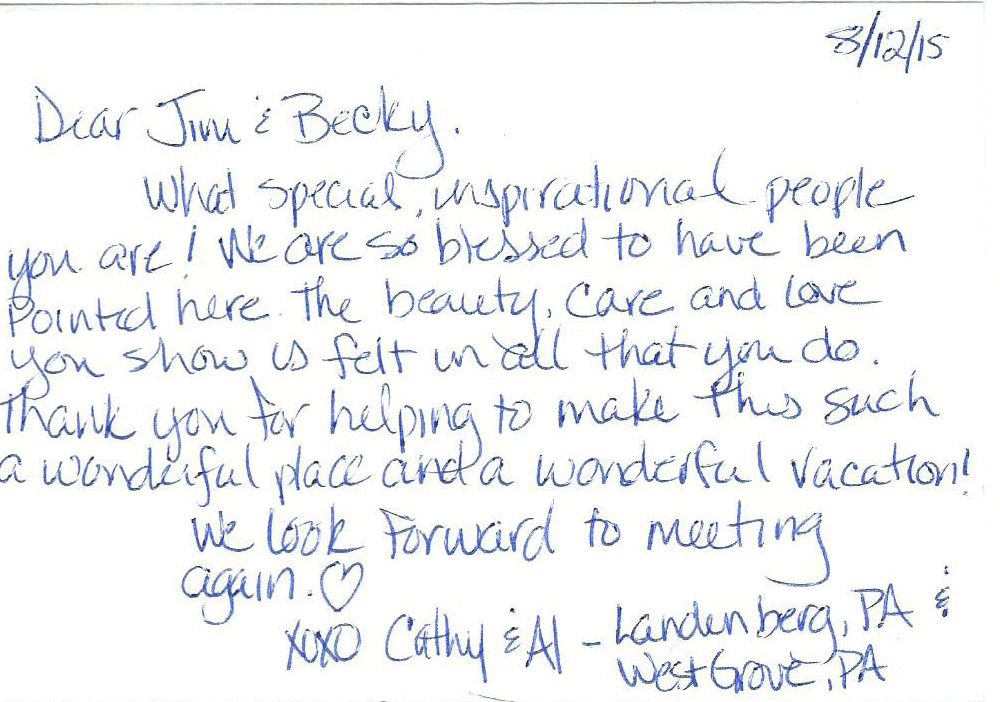 8/12/15
Dear Jim & Becky.
What special, inspirational people
you are! We are so blessed to have been
pointed here. The beauty, care and love
you show is felt in all that you do.
Thank you for helping to make this such
a wonderful place and a wonderful vacation!
We look forward to meeting
again. ♡
xoxo Cathy & Al - Landenberg, PA &
West Grove, PA